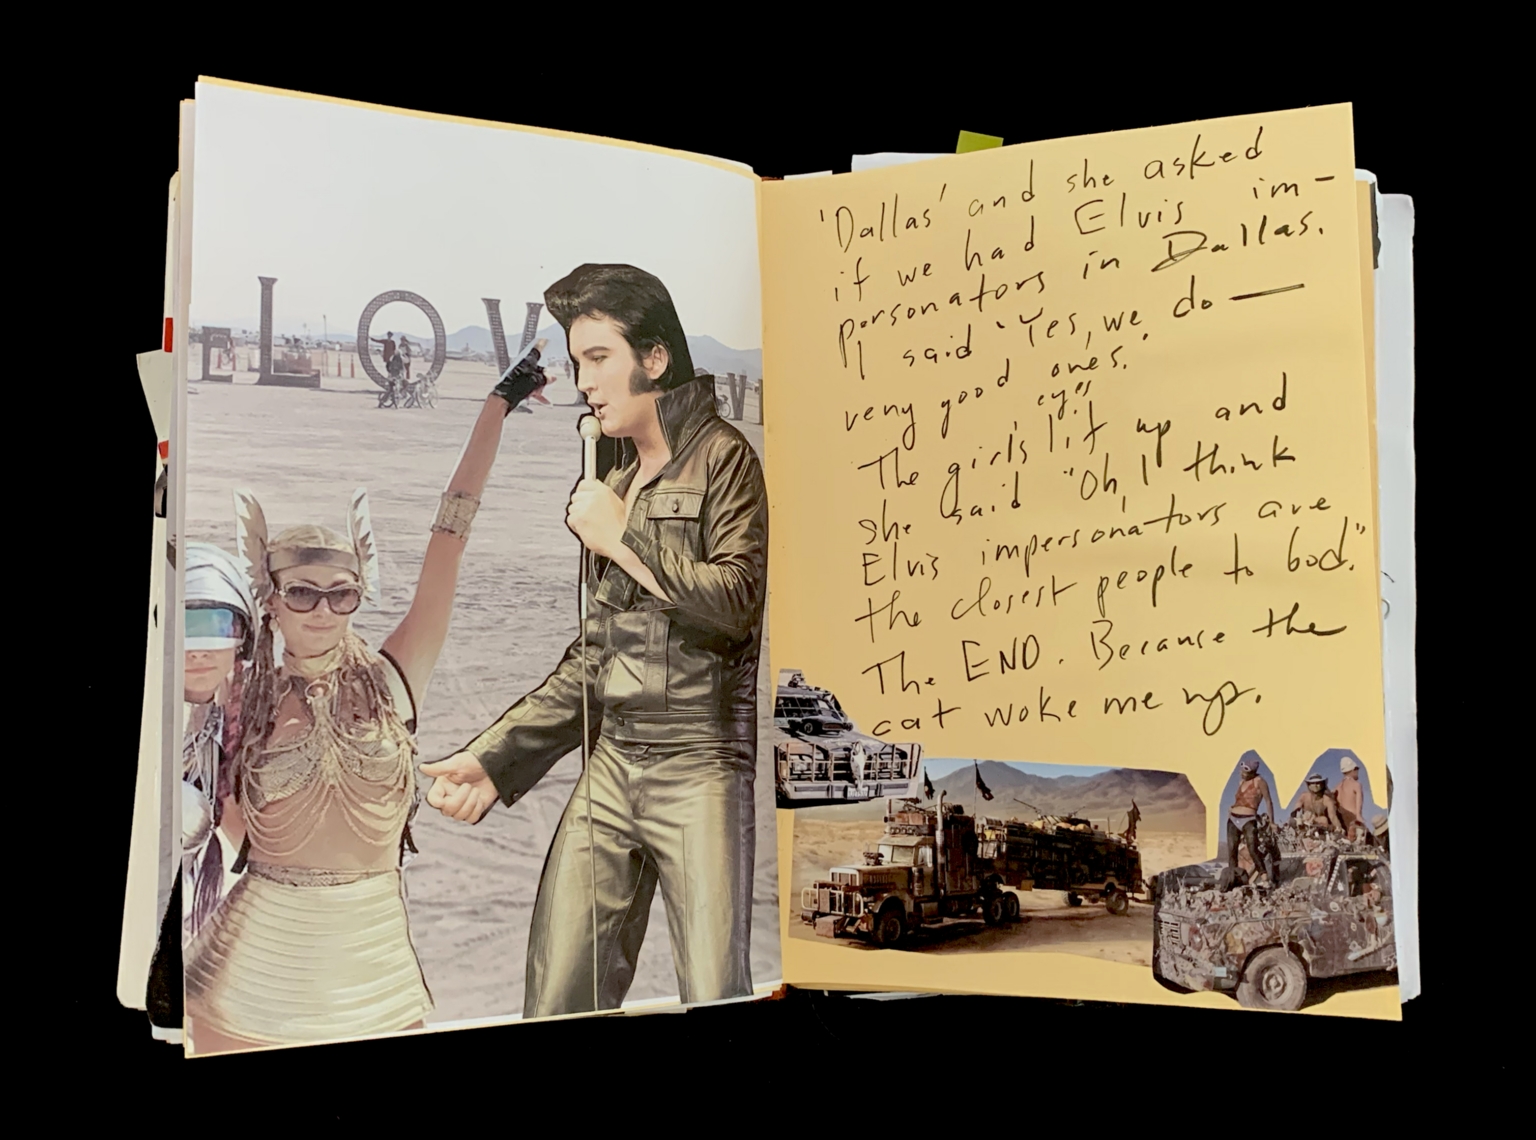 LOV
'Dallas' and she asked
if we had Elvis im-
personators in Dallas.
I said "Yes, we do —
very good ones."
eyes
The girl's lit up and
she said "Oh, I think
Elvis impersonators are
the closest people to God."
The END. Because the
cat woke me up.